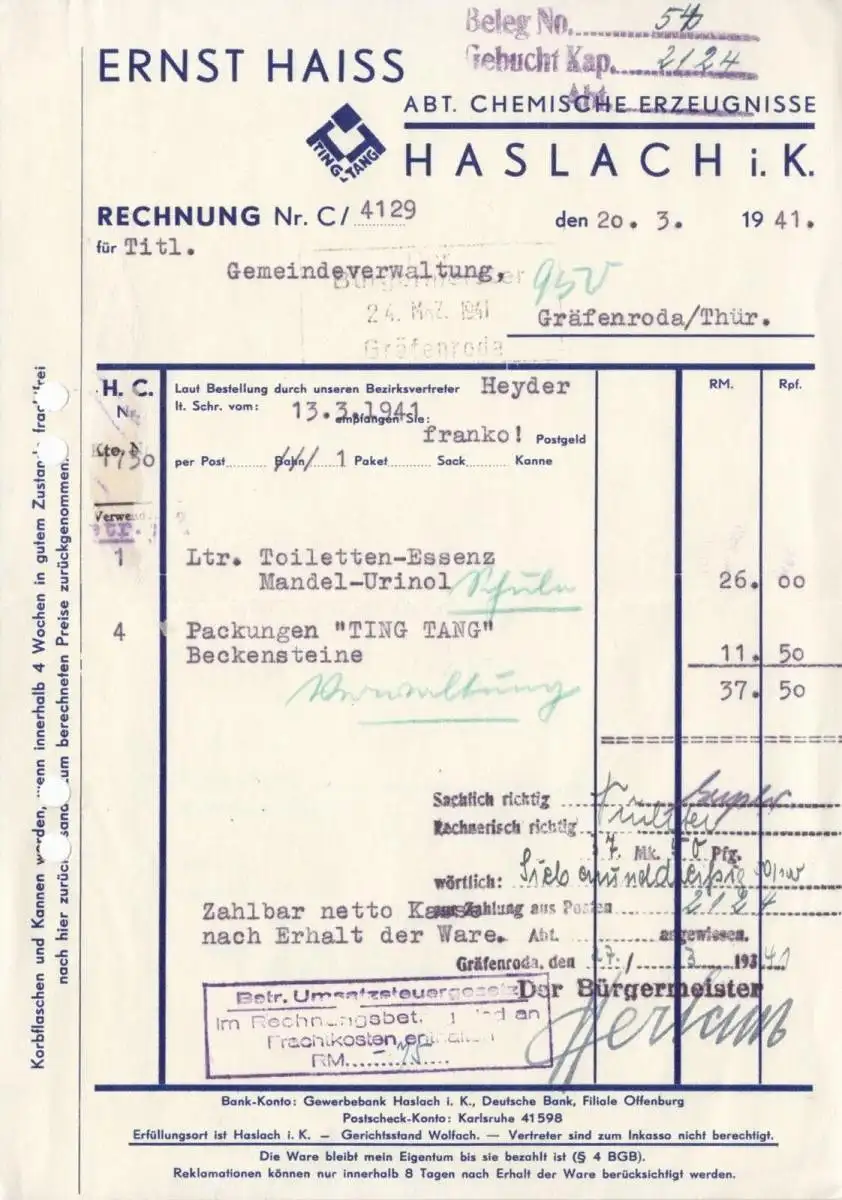 Beleg No. 54
Gebucht Kap. 2124
Abt.
ERNST HAISS
ABT. CHEMISCHE ERZEUGNISSE
TING-TANG
HASLACH i. K.
RECHNUNG Nr. C/ 4129
den 20. 3. 1941.
für Titl.
Gemeindeverwaltung,
Bürgermeister
24. MRZ. 1941
Gräfenroda
Gräfenroda/Thür.
H. C.
Nr.
Kto. N
1750
Verwend.
Laut Bestellung durch unseren Bezirksvertreter Heyder
lt. Schr. vom: 13.3.1941
empfangen Sie:
franko! Postgeld
per Post Bahn 1 Paket Sack Kanne
RM. Rpf.
1 Ltr. Toiletten-Essenz
Mandel-Urinol Schule 26. 00
4 Packungen "TING TANG"
Beckensteine 11. 50
Verwaltung 37. 50
Sachlich richtig
Rechnerisch richtig
37 Mk. 50 Pfg.
wörtlich: Siebenunddreißig 50/100
Zahlbar netto Kasse
zur Zahlung aus Posten 2124
nach Erhalt der Ware. Abt. angewiesen.
Gräfenroda, den 27. / 3 1941
Der Bürgermeister
Betr. Umsatzsteuergesetz
Im Rechnungsbetrag sind an
Frachtkosten enthalten
RM. -75
Korbflaschen und Kannen werden, wenn innerhalb 4 Wochen in gutem Zustand frachtfrei
nach hier zurückgesandt, zum berechneten Preise zurückgenommen.
Bank-Konto: Gewerbebank Haslach i. K., Deutsche Bank, Filiale Offenburg
Postscheck-Konto: Karlsruhe 41598
Erfüllungsort ist Haslach i. K. – Gerichtsstand Wolfach. — Vertreter sind zum Inkasso nicht berechtigt.
Die Ware bleibt mein Eigentum bis sie bezahlt ist (§ 4 BGB).
Reklamationen können nur innerhalb 8 Tagen nach Erhalt der Ware berücksichtigt werden.